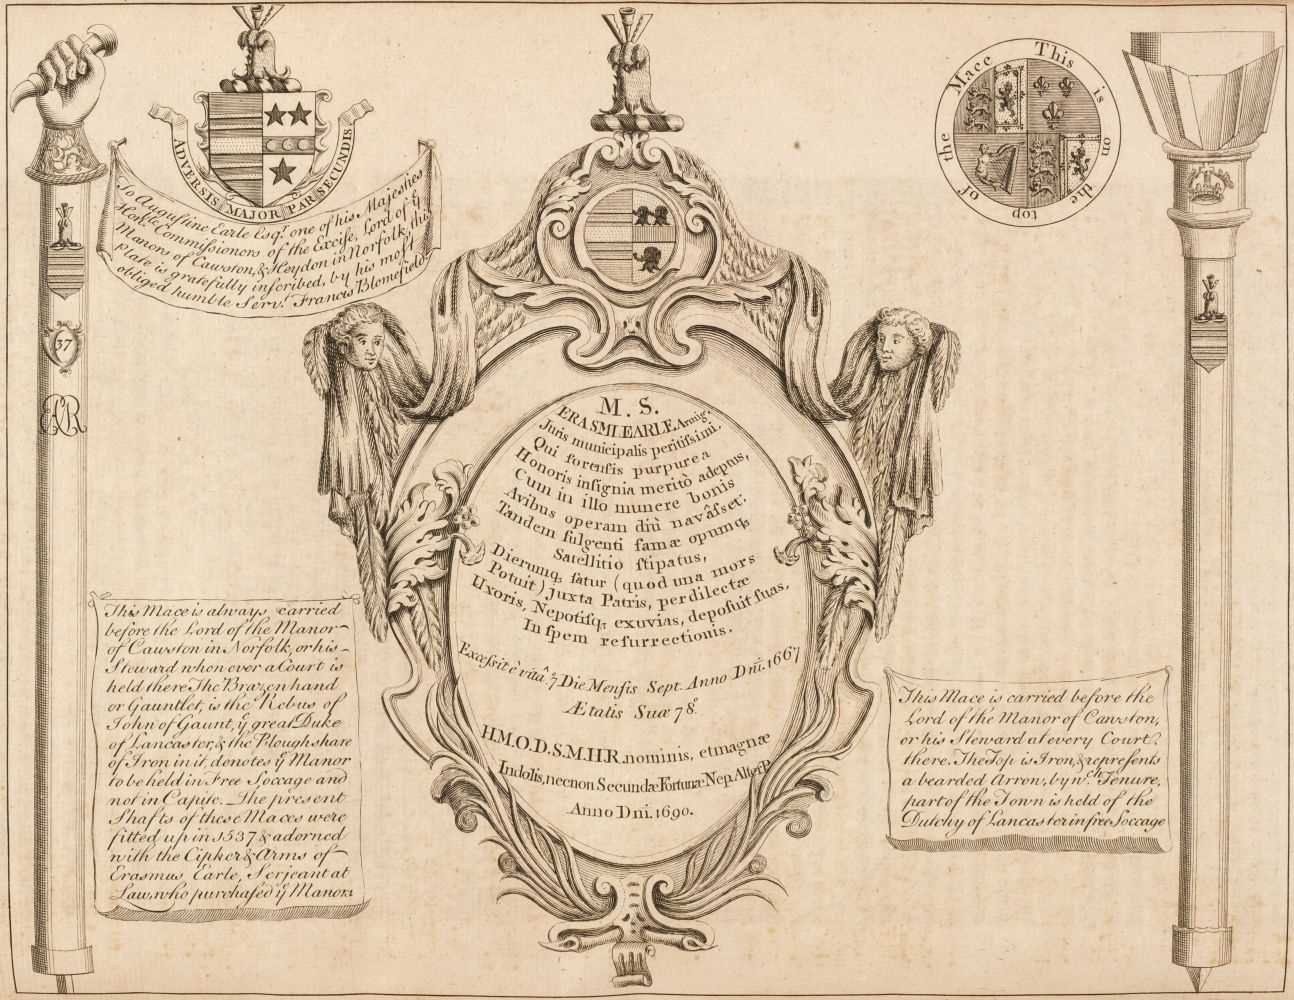 ADVERSIS MAJOR PAR SECUNDIS
To Augustine Earle Esqr. one of his Majesties
Honble. Commissioners of the Excise, Lord of ye
Manors of Cawston, & Heydon in Norfolk, this
plate is gratefully inscribed, by his most
obliged humble Servt. Francis Blomefield.
37
ER
This Mace is always carried
before the Lord of the Manor
of Cawston in Norfolk, or his
Steward when ever a Court is
held there The Brazen hand
or Gauntlet, is the Rebus of
John of Gaunt, ye great Duke
of Lancaster, & the Ploughshare
of Iron in it, denotes ye Manor
to be held in Free Soccage and
not in Capite. The present
Shafts of these Maces were
fitted up in 1537 & adorned
with the Cipher & Arms of
Erasmus Earle, Serjeant at
Law, who purchased ye Manor.
M. S.
ERASMI EARLE Armig.
Juris municipalis peritissimi.
Qui forensis purpurea
Honoris insignia meritò adeptus,
Cum in illo munere bonis
Avibus operam diù navâsset;
Tandem fulgenti famæ opumq;
Satellitio stipatus,
Dierumq; satur (quod una mors
Potuit) juxta Patris, perdilectæ
Uxoris, Nepotisq; exuvias, deposuit suas,
In spem resurrectionis.
Excessit è vitâ 7 Die Mensis Sept. Anno Dni. 1667
Ætatis Suæ 78.
H.M.O.D.S.M.H.R. nominis, et magnæ
Indolis, necnon Secundæ Fortunæ Nep. Alter P.
Anno Dni. 1690.
This is on the top of the Mace
This Mace is carried before the
Lord of the Manor of Cawston,
or his Steward at every Court
there. The Top is Iron, & represents
a bearded Arrow, by wch. Tenure,
part of the Town is held of the
Dutchy of Lancaster in free Soccage